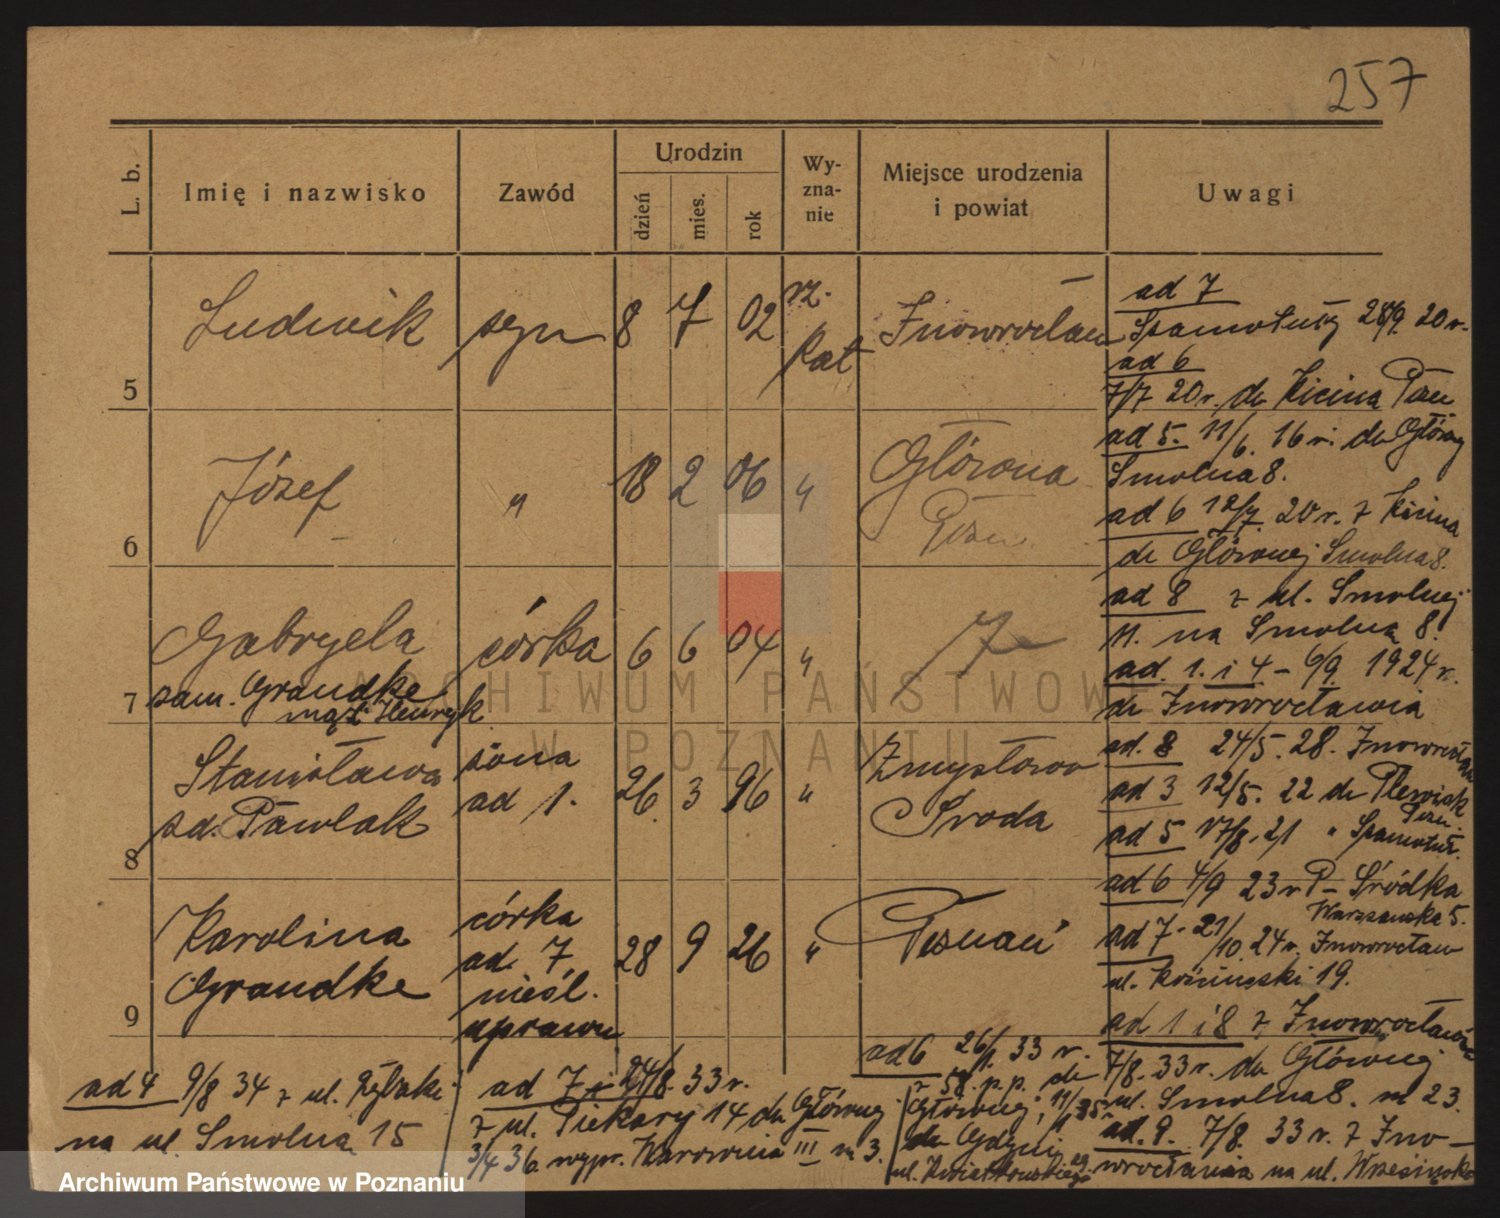 257
L. b.
Imię i nazwisko
Zawód
Urodzin
dzień
mies.
rok
Wy-
zna-
nie
Miejsce urodzenia
i powiat
Uwagi
5
Ludwik
syn
8 7 02
rz.
kat
Inowrocław
6
Józef
"
18 2 06
"
Główna
Pozn.
7
Gabryela
zam. Grandke
mąż Henryk
córka
6 6 04
"
8
Stanisława
zd. Pawlak
żona
ad 1.
26. 3 96
"
Zmysłowo
Środa
9
Karolina
Grandke
córka
ad. 7
nieśl.
uprawn
28 9 26
"
Poznań
ad 7
Szamotuły 28/9. 20 r.
ad 6
7/7 20 r. do Kicina Pozn
ad 5. 11/6. 16 r. do Główny
Smolna 8.
ad 6 12/7. 20 r. z Kicina
do Głównej Smolna 8.
ad 8 z ul. Smolnej
11. na Smolną 8.
ad. 1. i 4 - 6/9. 1924 r.
do Inowrocławia
ad. 8 24/5. 28. Inowrocław
ad 3 12/5. 22 do Plewisk
Pozn.
ad 5 17/8. 21 " Szamotuł.
ad 6 4/9 23 r P- Śródka
Warszawska 5.
ad 7. 21/10. 24 r. Inowrocław
ul. 19.
ad 1 i 8 z Inowrocławia
7/8. 33 r. do Głównej
ul. Smolna 8. m 23.
ad. 9. 7/8. 33 r. z Ino-
wrocławia na ul.
ad 4 9/8 34 z ul.
na ul. Smolna 15
ad 7 24/8. 33 r.
z ul. Piekary 14 do Głównej
3/4 36. wypr. Harcownia III m 3.
ad 6 26/1. 33 r.
z 58. p. p. do
Głównej, 11/1 35 r.
do Gdyni
ul. Kwiatkowskiego
ARCHIWUM PAŃSTWOWE
W POZNANIU
Archiwum Państwowe w Poznaniu